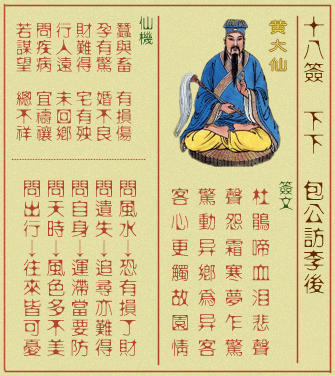 十八簽 下下 包公訪李後
黄大仙
簽文
杜鵑啼血泪悲聲
聲怨霜寒夢乍驚
驚動异鄉爲异客
客心更觸故園情
仙機
蠶與畜 有損傷
孕有驚 婚不良
財難得 宅有殃
行人遠 未回鄉
問疾病 宜禱禳
若謀望 總不祥
問風水→恐有損了財
問遺失→追尋亦難得
問自身→運滯當要防
問天時→風色多不美
問出行→往來皆可憂